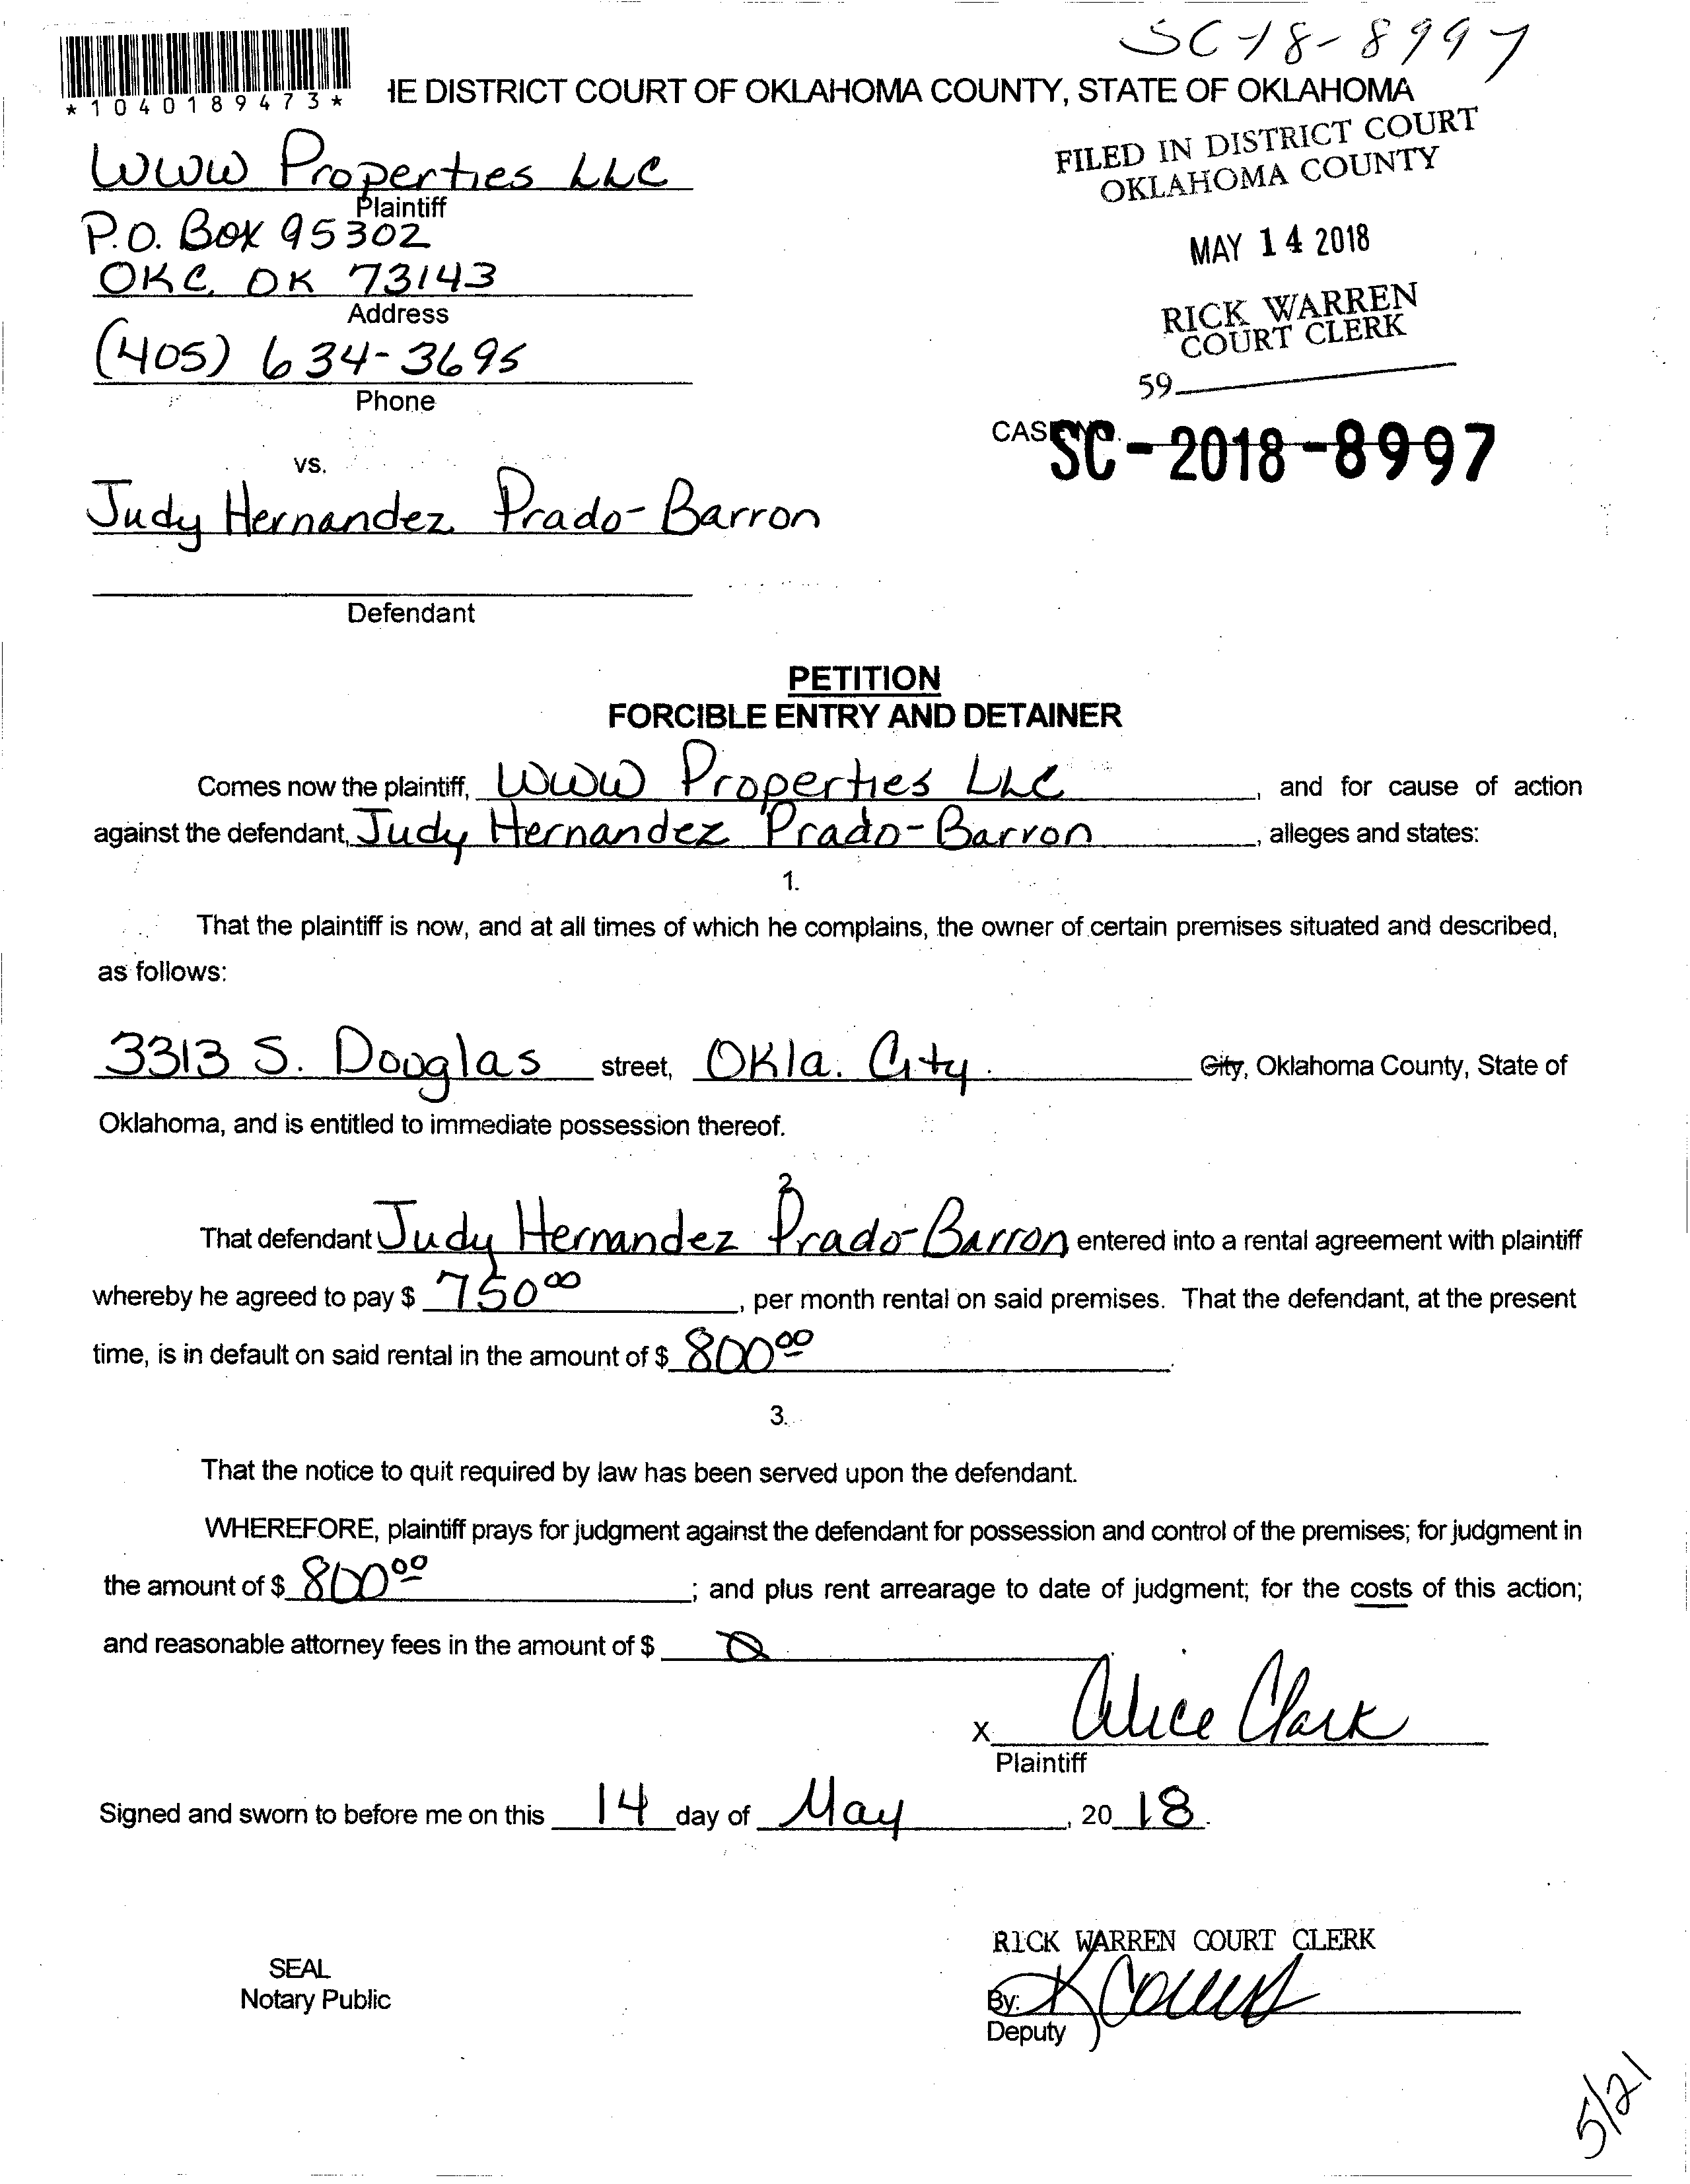 SC-18-8997
*1040189473*
HE DISTRICT COURT OF OKLAHOMA COUNTY, STATE OF OKLAHOMA
FILED IN DISTRICT COURT
OKLAHOMA COUNTY
WWW Properties LLC
Plaintiff
P.O. Box 95302
MAY 14 2018
OKC, OK 73143
Address
RICK WARREN
COURT CLERK
(405) 634-3695
Phone
59
CASE NO.
SC-2018-8997
vs.
Judy Hernandez Prado-Barron
Defendant
PETITION
FORCIBLE ENTRY AND DETAINER
Comes now the plaintiff, WWW Properties LLC, and for cause of action
against the defendant, Judy Hernandez Prado-Barron, alleges and states:
1.
That the plaintiff is now, and at all times of which he complains, the owner of certain premises situated and described,
as follows:
3313 S. Douglas street, Okla. City City, Oklahoma County, State of
Oklahoma, and is entitled to immediate possession thereof.
2
That defendant Judy Hernandez Prado-Barron entered into a rental agreement with plaintiff
whereby he agreed to pay $ 750 00, per month rental on said premises. That the defendant, at the present
time, is in default on said rental in the amount of $ 800 00.
3.
That the notice to quit required by law has been served upon the defendant.
WHEREFORE, plaintiff prays for judgment against the defendant for possession and control of the premises; for judgment in
the amount of $ 800 00; and plus rent arrearage to date of judgment; for the costs of this action;
and reasonable attorney fees in the amount of $ 0
x Alice Clark
Plaintiff
Signed and sworn to before me on this 14 day of May, 20 18.
RICK WARREN COURT CLERK
SEAL
Notary Public
By: K
Deputy
5/21